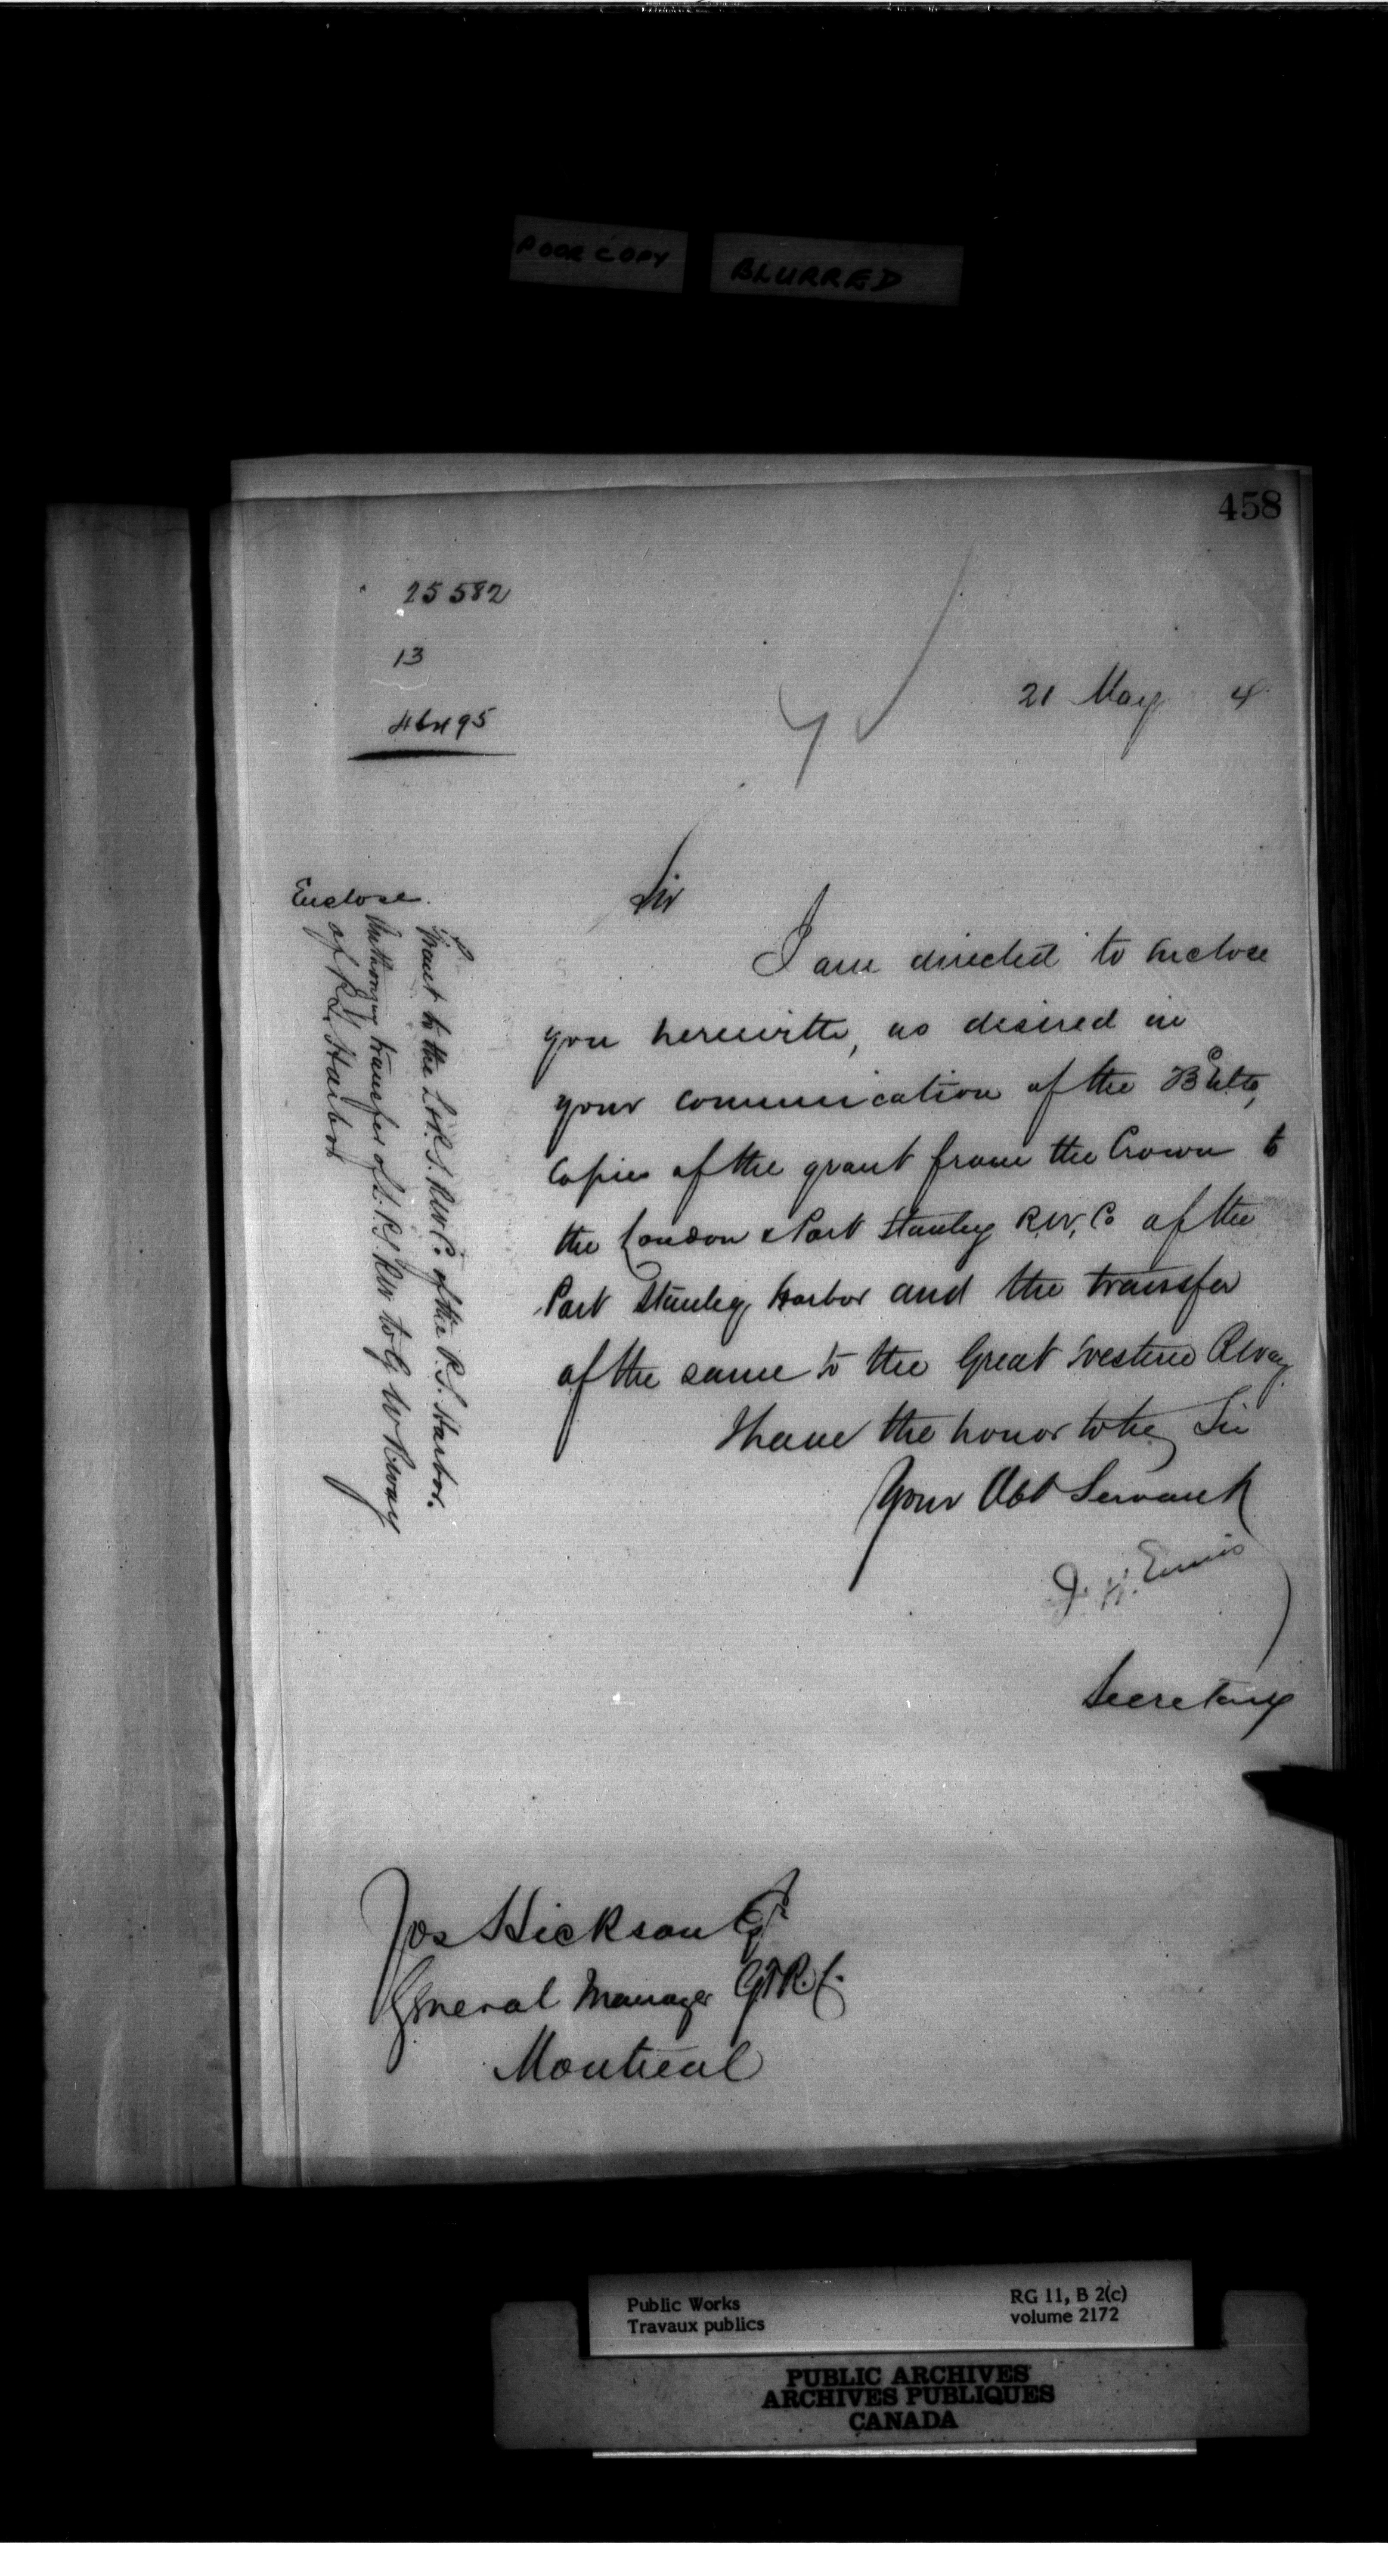 POOR COPY
BLURRED
458
25582
13
46495
21 May 4
Sir
I am directed to enclose
you herewith, as desired in
your communication of the
Copies of the grant from the Crown to
the London & Port Stanley R.W. Co of the
Port Stanley Harbor and the transfer
of the same to the Great Western Rway
I have the honor to be, Sir
Your Obt Servant
F. H. Ennis
Secretary
Enclose.
Grant to the L & P.S. RW Co. of the P.S. Harbor.
transfer of L. P.S RW to G W Rway
of P.S. Harbor
Jos Hickson Esqr
General Manager G.T.R.
Montreal
Public Works
Travaux publics
RG 11, B 2(c)
volume 2172
PUBLIC ARCHIVES
ARCHIVES PUBLIQUES
CANADA